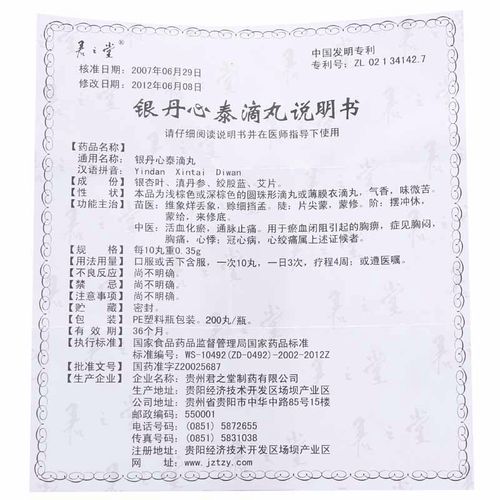 君之堂®
中国发明专利
核准日期：2007年06月29日
专利号：ZL 02 1 34142.7
修改日期：2012年06月08日
银丹心泰滴丸说明书
请仔细阅读说明书并在医师指导下使用
【药品名称】
通用名称：银丹心泰滴丸
汉语拼音：Yindan Xintai Diwan
【成 份】银杏叶、滇丹参、绞股蓝、艾片。
【性 状】本品为浅棕色或深棕色的圆珠形滴丸或薄膜衣滴丸，气香，味微苦。
【功能主治】苗医：维象样丢象，赊细挡孟。陡：片尖蒙，蒙修。阶：摆冲休，
蒙给，来修底。
中医：活血化瘀，通脉止痛。用于瘀血闭阻引起的胸痹，症见胸闷，
胸痛，心悸；冠心病，心绞痛属上述证候者。
【规 格】每10丸重0.35g
【用法用量】口服或舌下含服，一次10丸，一日3次，疗程4周；或遵医嘱。
【不良反应】尚不明确。
【禁 忌】尚不明确。
【注意事项】尚不明确。
【贮 藏】密封。
【包 装】PE塑料瓶包装。200丸/瓶。
【有 效 期】36个月。
【执行标准】国家食品药品监督管理局国家药品标准
标准编号：WS-10492(ZD-0492)-2002-2012Z
【批准文号】国药准字Z20025687
【生产企业】企业名称：贵州君之堂制药有限公司
生产地址：贵阳经济技术开发区场坝产业区
公司地址：贵州省贵阳市中华中路85号15楼
邮政编码：550001
电话号码：(0851) 5872655
传真号码：(0851) 5831038
注册地址：贵阳经济技术开发区场坝产业区
网 址：www.jztzy.com